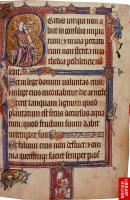 Beatus uir qui non a
bijt in consilio impio
rum: et in uia peccato
rum non stetit: et in ca
thedra pestilencie non
sedit
Set in lege domini uoluntas eius: et
in lege eius meditabitur die ac nocte
Et erit tanquam lignum: quod
plantatum est secus decursus aqua
rum: quod fructum suum dabit
in tempore suo
Et folium eius non defluet: et om
nia quecumque faciet semper prosp
BRITISH
LIBRARY